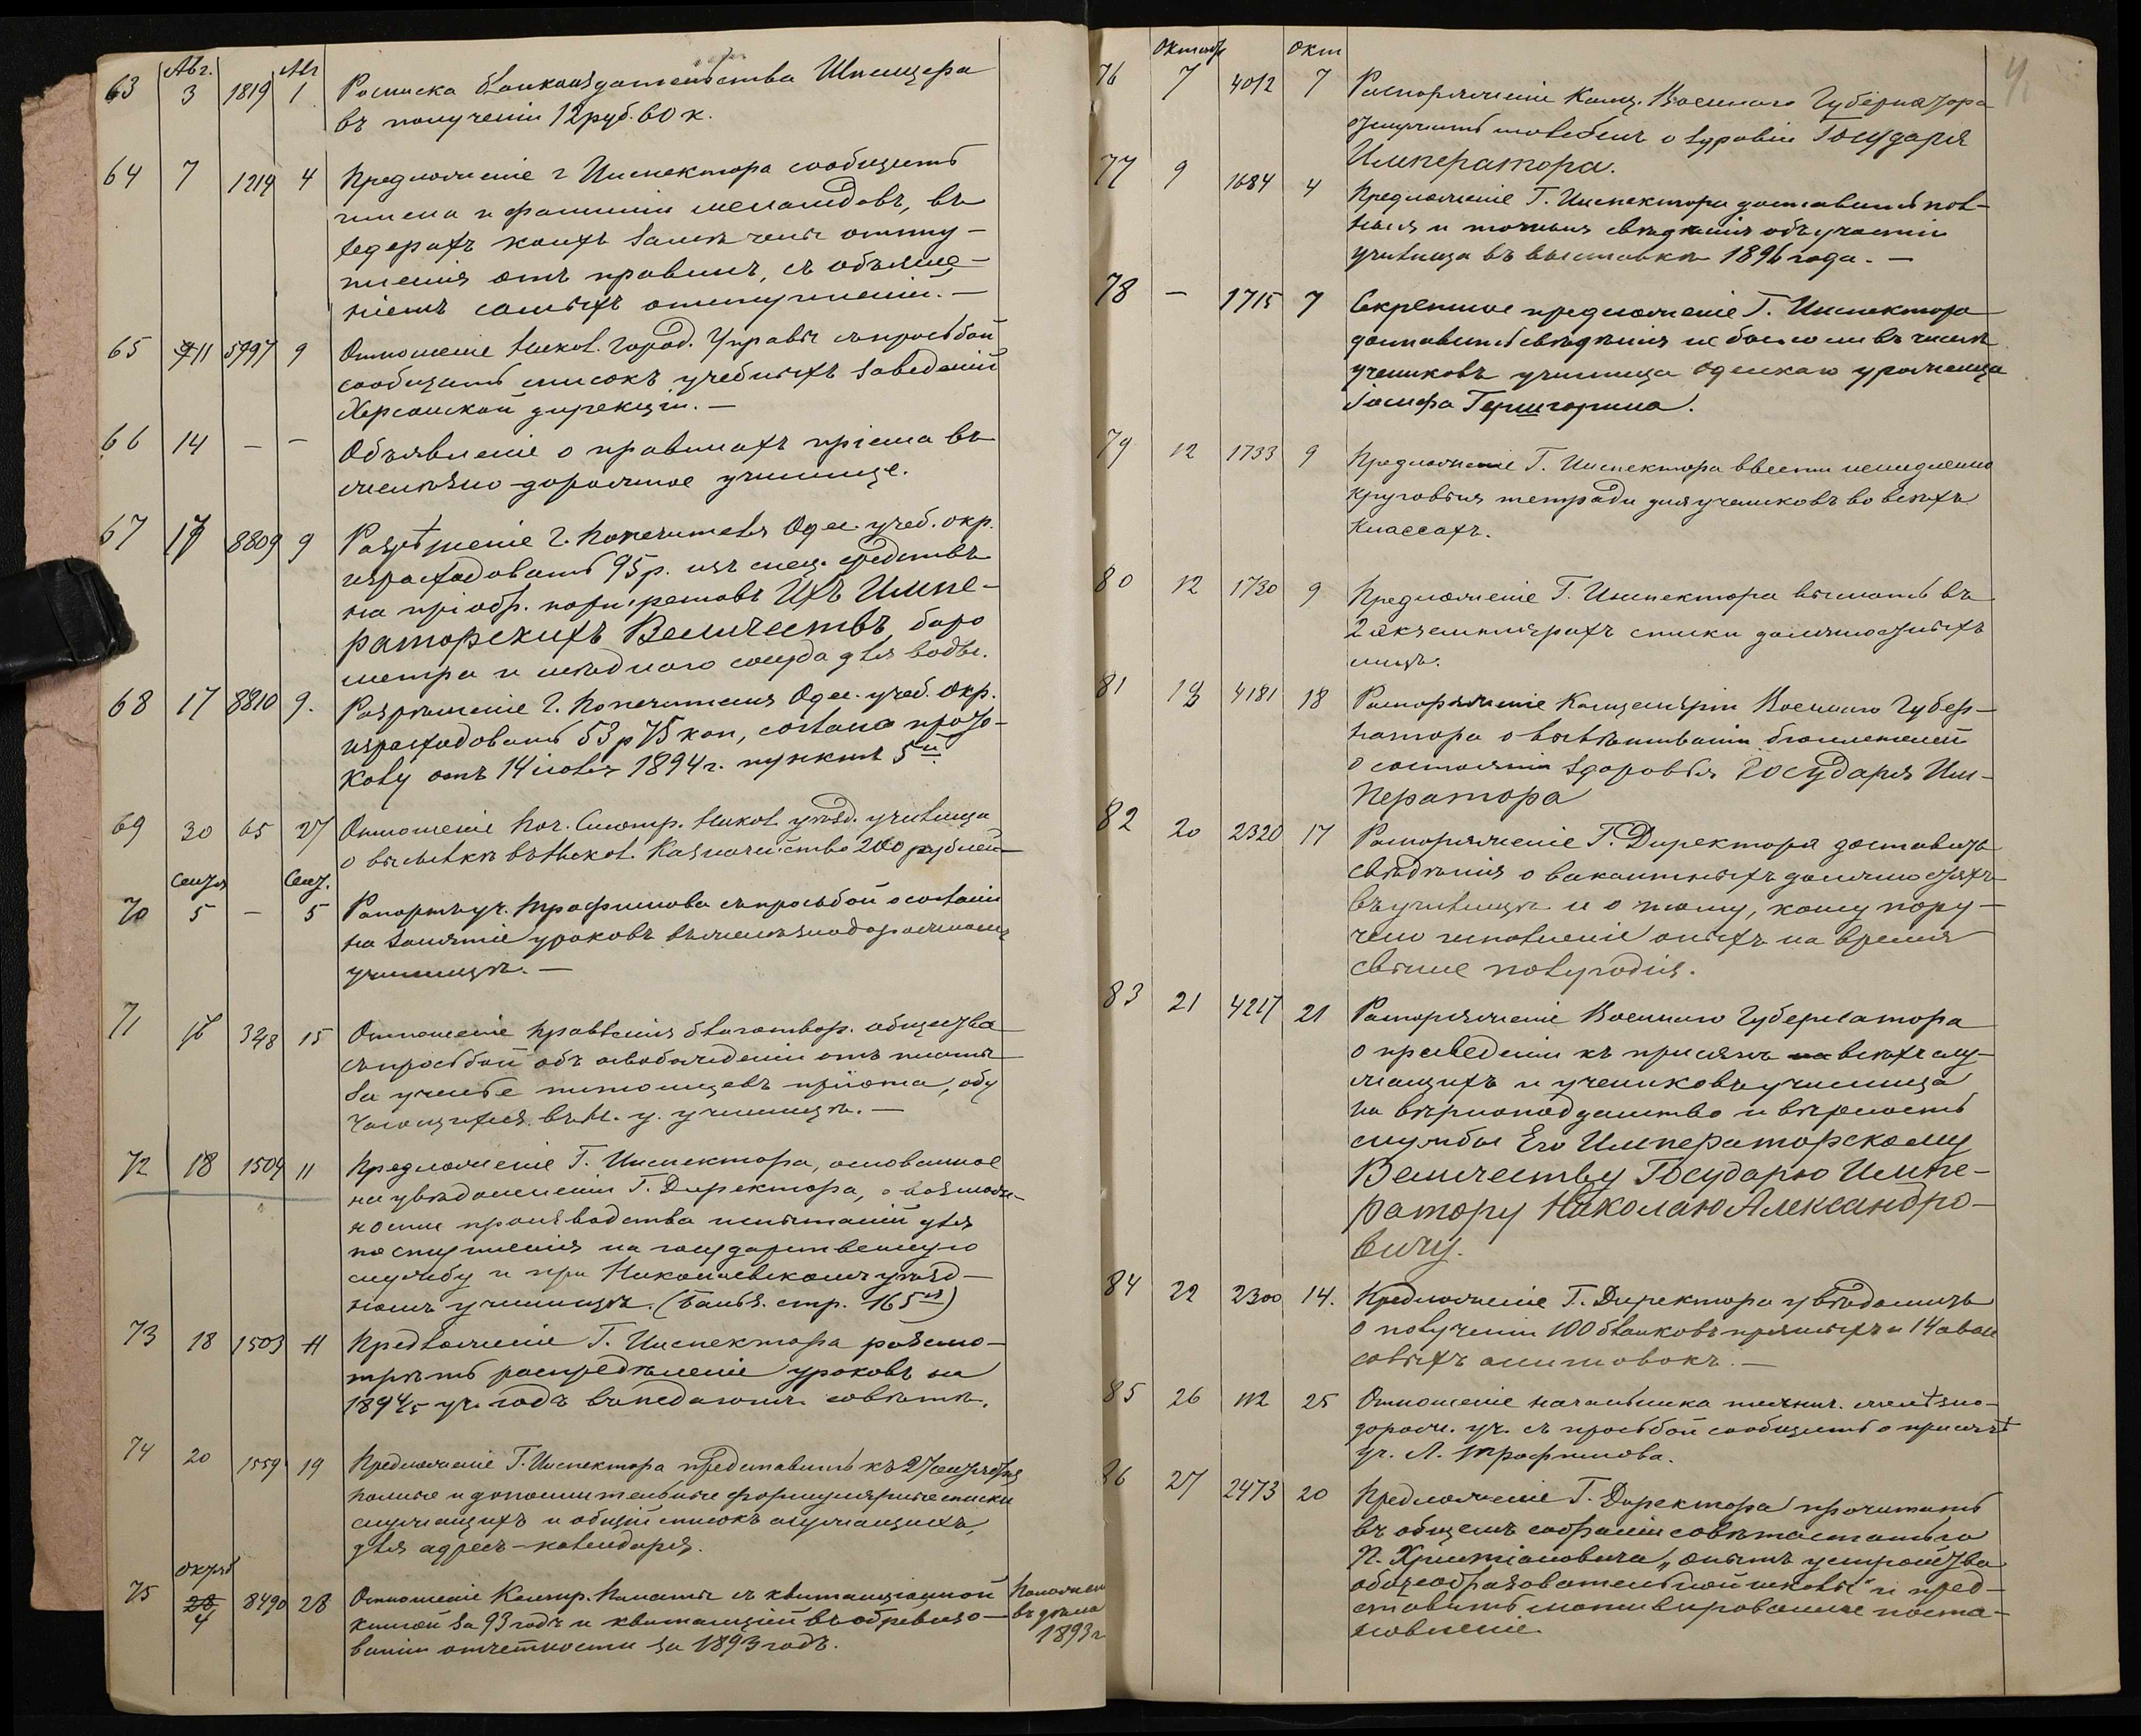 Авг. Авг
63 3 1819 1 Росписка Книгоиздательства Шпицера
въ полученіи 12 руб. 60 к.
64 7 1219 4 Предложеніе г Инспектора сообщить
имена и фамиліи
коихъ замѣчены отсту-
пленія отъ правилъ, съ объясне-
ніемъ самыхъ отступленій. —
65 11 5997 9 Отношеніе Никол. Город. Управы съ просьбой
сообщить списокъ учебныхъ заведеній
Херсонской дирекціи. —
66 14 — — Объявленіе о правилахъ пріема въ
желѣзно-дорожное училище.
67 17 8809 9 Разрѣшеніе г. Попечителя Одес. учеб. окр.
израсходовать 95 р. изъ спец. средствъ
на пріобр. портретовъ Ихъ Импе-
раторскихъ Величествъ, баро
метра и мѣднаго сосуда для воды.
68 17 8810 9. Разрѣшеніе г. Попечителя Одес. учеб. окр.
израсходовать 53 р 75 коп, согласно прото-
колу отъ 14 1894 г. пунктъ 5й
69 30 65 27 Отношеніе Поч. Смотр. Никол. уѣзд. училища
о высылкѣ въ Никол. Казначейство 200 рублей
Сентя Сент.
70 5 — 5 Рапортъ уч. Трофимова съ просьбой о согласіи
на занятіе уроковъ въ желѣзнодорожномъ
училищѣ. —
71 16 328 15 Отношеніе Правленія благотвор. общества
съ просьбой объ освобожденіи отъ платы
за ученье питомцевъ пріюта, обу
чающихся въ Н. у. училищѣ. —
72 18 1504 11 Предложеніе Г. Инспектора, основанное
на увѣдомленіи Г. Директора, о возмож-
ности производства испытаній для
поступленія на государственную
службу и при Николаевскомъ уѣзд-
номъ училищѣ. стр. 165я)
73 18 1503 11 Предложеніе Г. Инспектора разсмо-
трѣть распредѣленіе уроковъ на
1894/5 уч. годъ въ педагогич. совѣтѣ.
74 20 1559 19 Предложеніе Г. Инспектора представить къ 27 сентября
полные и дополнительные формулярные списки
служащихъ и общій списокъ служащихъ,
для адресъ-календаря.
октяб
75 28 4 8490 28 Отношеніе Контр. Палаты съ квитанціонной
книгой за 93 годъ и квитанціей въ обревизо-
ваніи отчетности за 1893 годъ.
въ дѣла
1893 г
Октябр Окт
76 7 4012 7 Распоряженіе Канц. Военнаго Губернатора
молебенъ о здравіи Государя
Императора.
77 9 1684 4 Предложеніе Г. Инспектора доставить пол-
ныя и точныя свѣдѣнія объ участіи
училища въ выставкѣ 1896 года. —
78 — 1715 7 Секретное предложеніе Г. Инспектора
доставить свѣдѣнія не было ли въ числѣ
учениковъ училища Одесскаго уроженца
Іосифа Гершгорина.
79 12 1733 9 Предложеніе Г. Инспектора ввести немедленно
круговыя тетради для учениковъ во всѣхъ
классахъ.
80 12 1730 9 Предложеніе Г. Инспектора выслать въ
2 экземплярахъ списки должностныхъ
лицъ.
81 18 4181 18 Распоряженіе Канцеляріи Военнаго Губер-
натора о вывѣшиваніи бюллетеней
о состояніи здоровья Государя Им-
ператора
82 20 2320 17 Распоряженіе Г. Директора доставить
свѣдѣнія о вакантныхъ должностяхъ
въ училищѣ и о тому, кому пору-
чено исполненіе оныхъ на время
свыше полугодія.
83 21 4217 21 Распоряженіе Военнаго Губернатора
о приведеніи къ присягѣ всѣхъ слу-
жащихъ и учениковъ училища
на вѣрноподданство и вѣрность
службы Его Императорскому
Величеству Государю Импе-
ратору Николаю Александро-
вичу.
84 22 2300 14. Предложеніе Г. Директора увѣдомить
о полученіи 100 бланковъ и 14
85 26 112 25 Отношеніе начальника технич. желѣзно-
дорожн. уч. съ просьбой сообщить о присягѣ
уч. Л. Трофимова.
86 27 2473 20 Предложеніе Г. Директора прочитать
въ общемъ собраніи совѣта статью
П. Христіановича „Опытъ устройства
общеобразовательной школы" и пред-
ставить мотивированное поста-
новленіе.